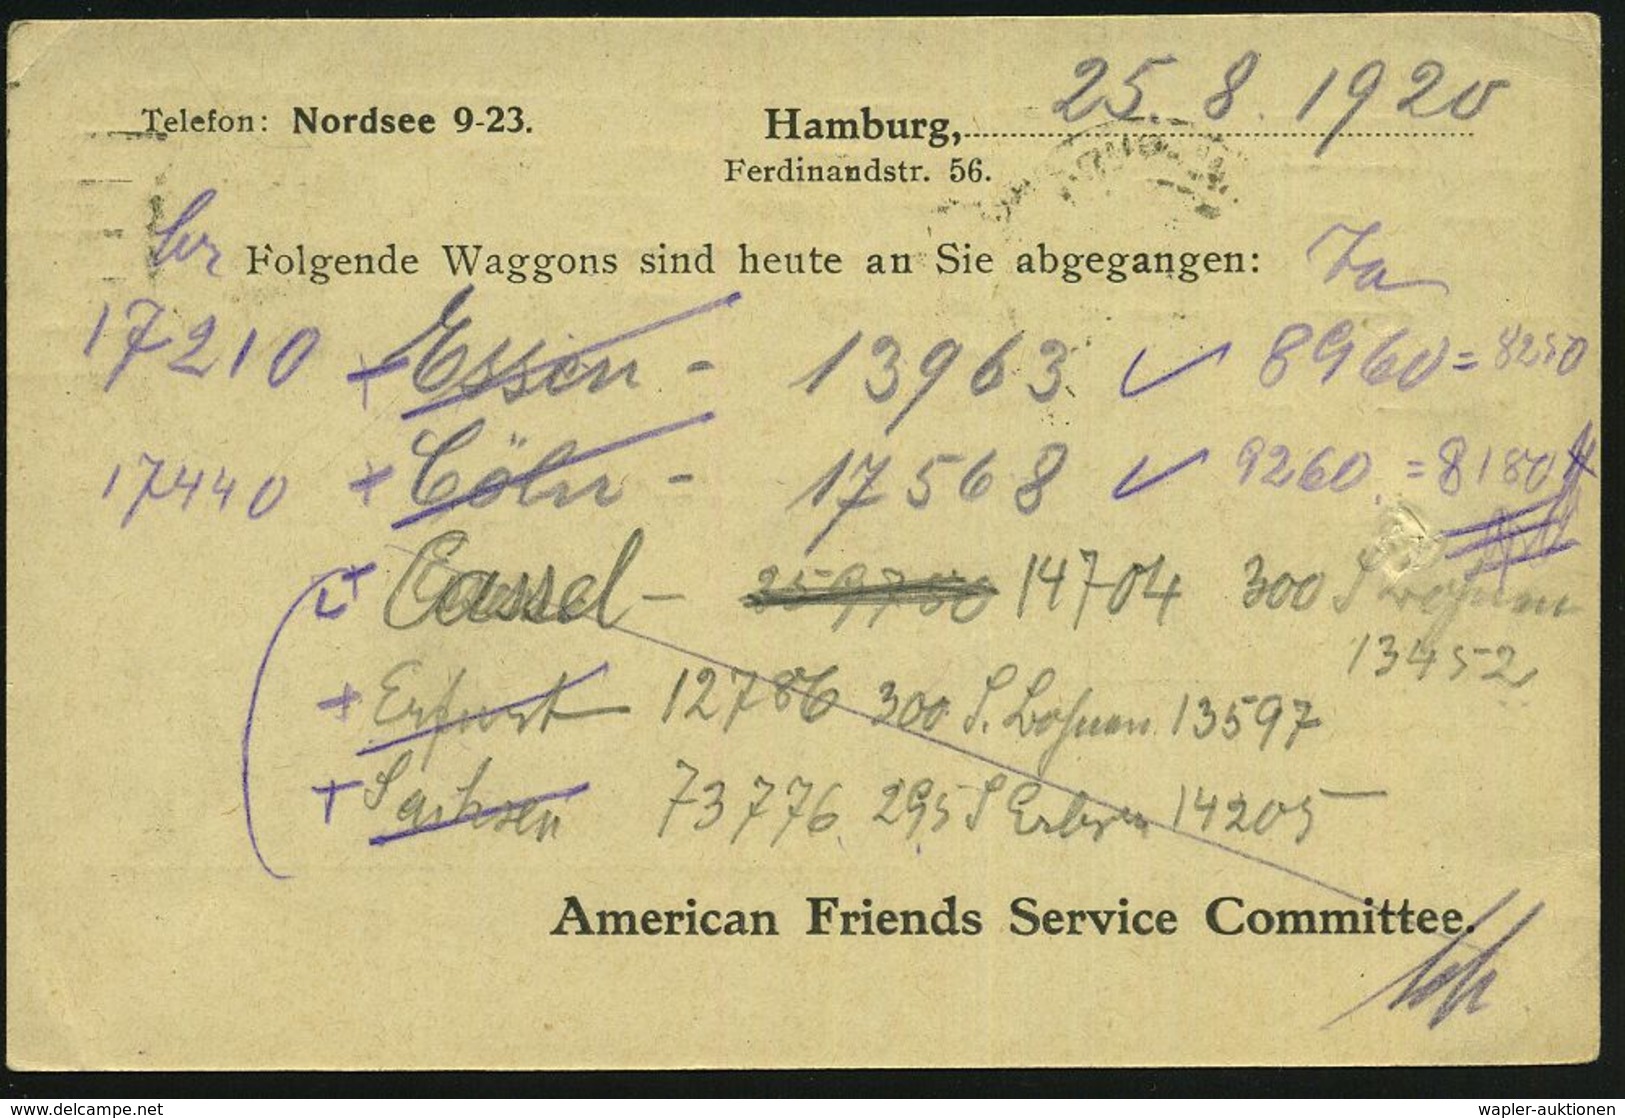 25. 8. 1920
Telefon: Nordsee 9-23. Hamburg,
Ferdinandstr. 56.
Folgende Waggons sind heute an Sie abgegangen:
17210 + Essen - 13963 ✓ 8960 = 8250
17440 + Cöln - 17568 ✓ 9260 = 8180
+ Cassel - 14704 300 S Bohnen
13452
+ Erfurt 12786 300 S. Bohnen 13597
+ Sachsen 73776 295 S Erbsen 14205
American Friends Service Committee.
wapler-auktionen
www.delcampe.net